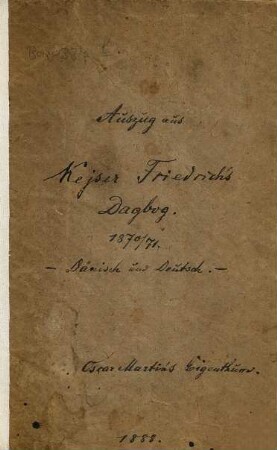 Auszug aus
Kejser Friedrichs
Dagbog.
1870/71.
– Dänisch und Deutsch. –
Oscar Martins Eigenthum.
1888.